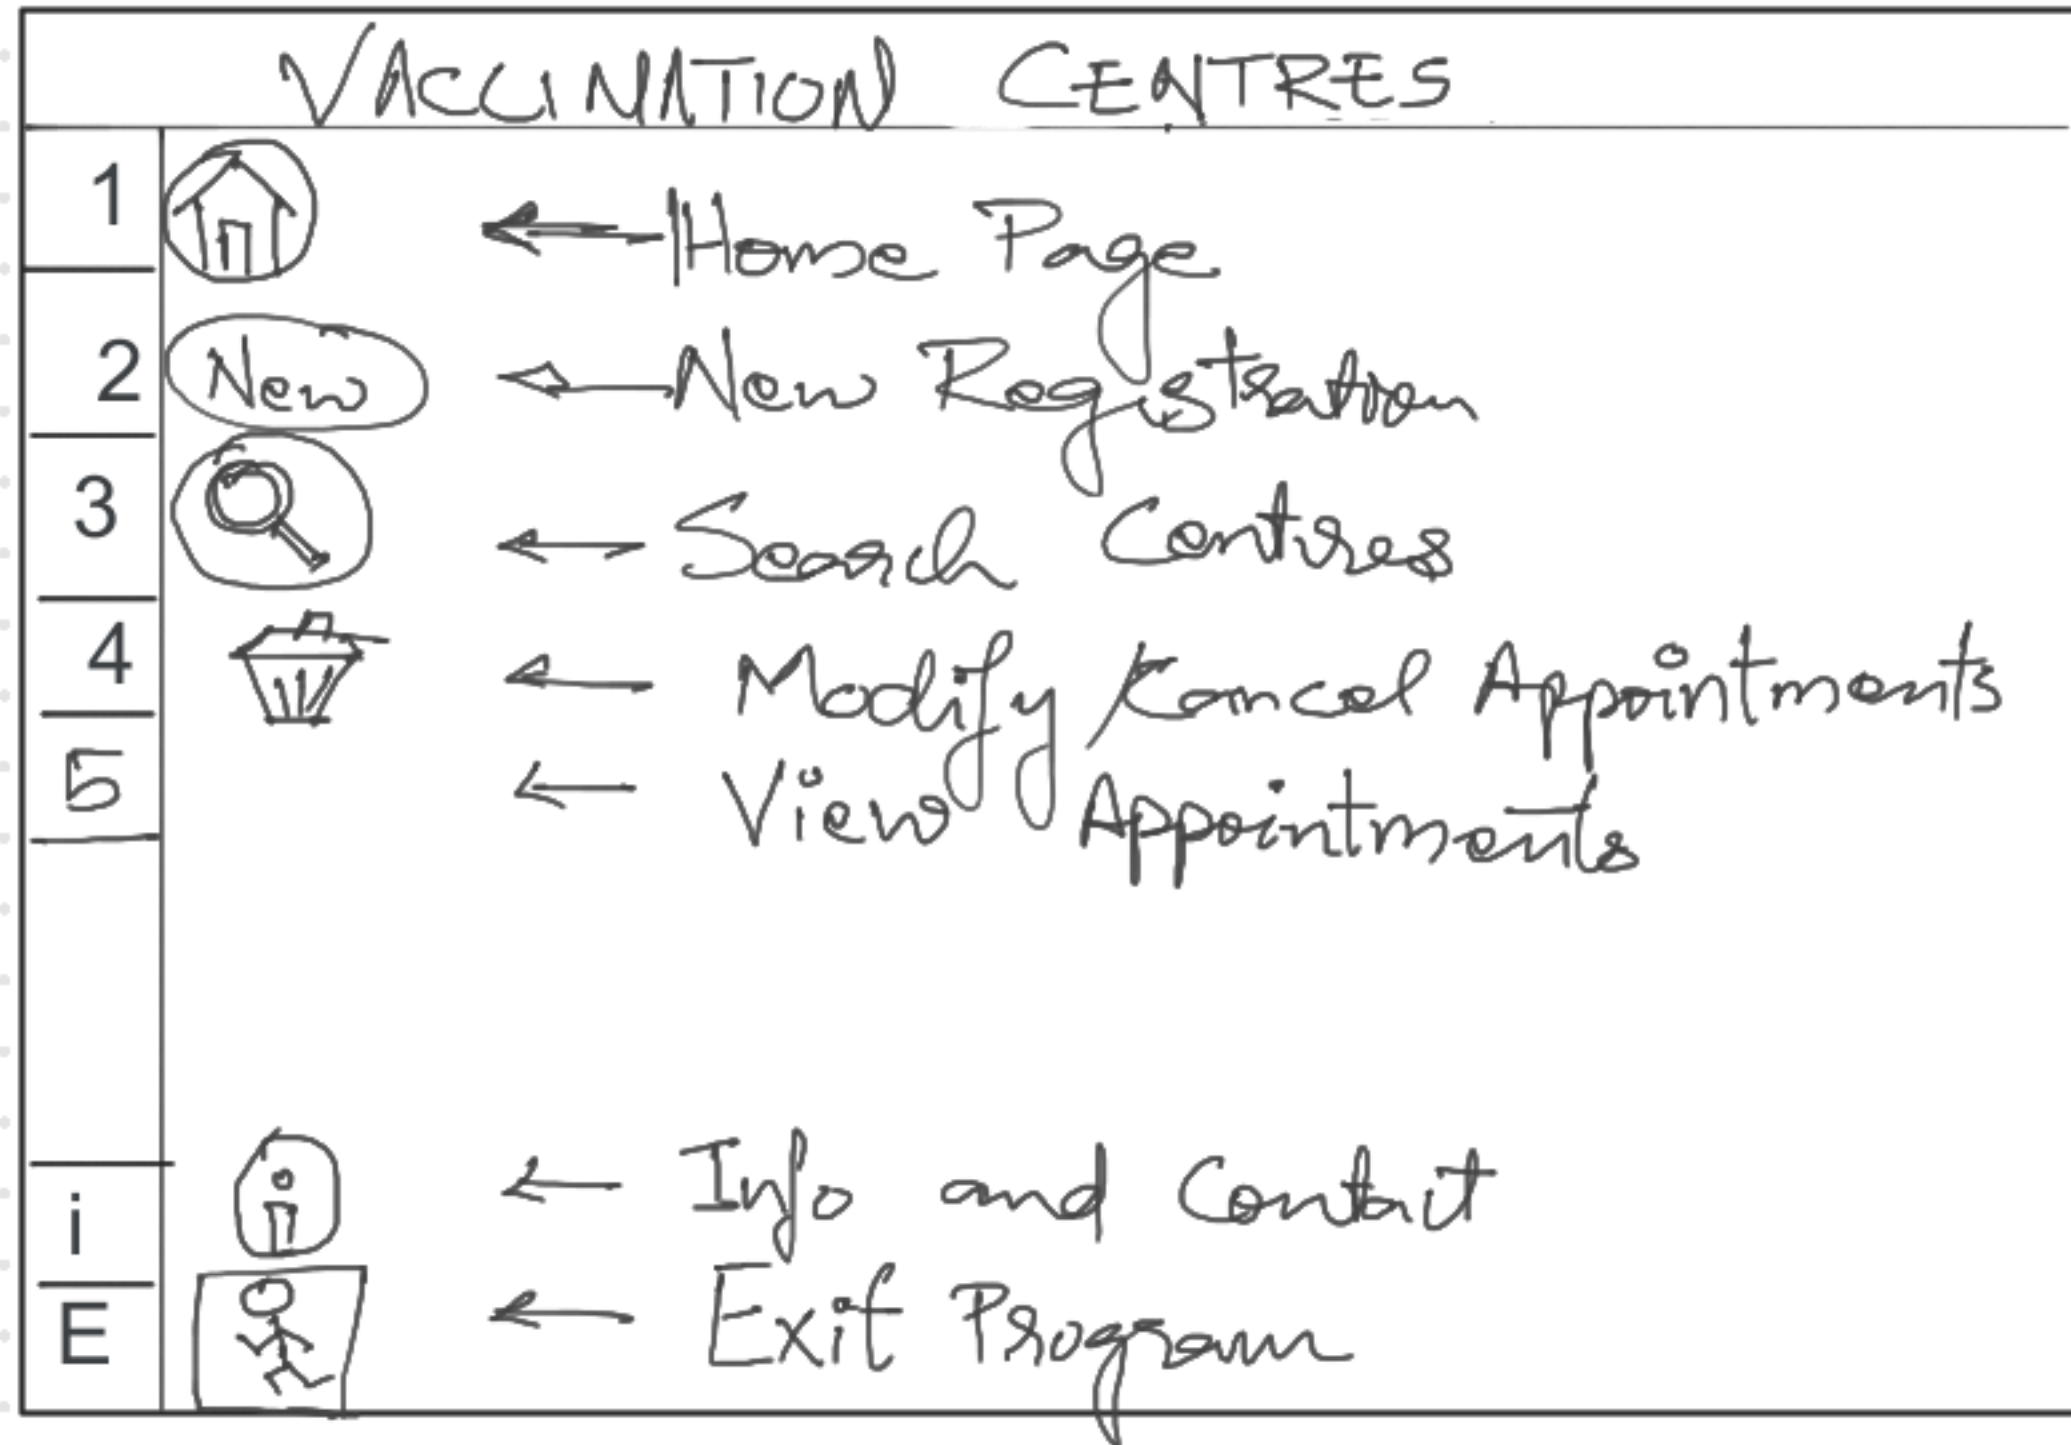 VACCINATION CENTRES
1 Home Page
2 New New Registration
3 Search Centres
4 Modify / Cancel Appointments
5 View Appointments
i i Info and Contact
E Exit Program